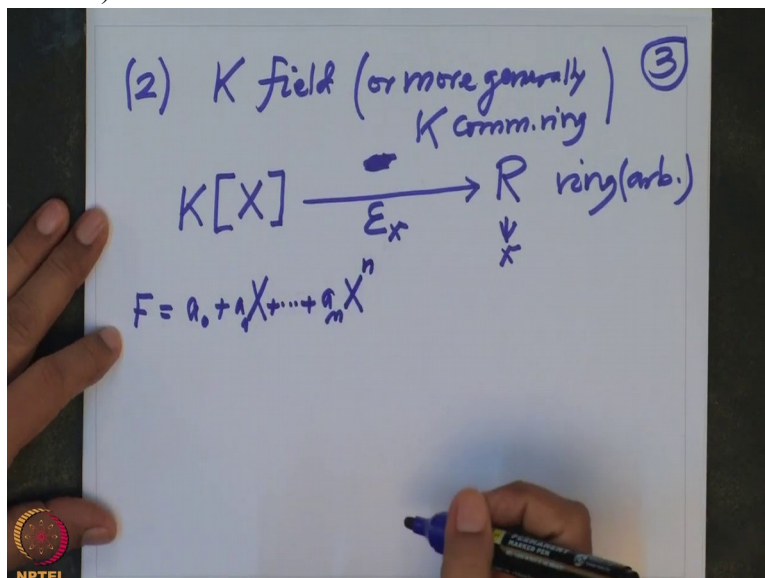 (2) K field (or more generally ③
K comm.ring)
K[X] → R ring(arb.)
ε_x
x
F = a₀ + a₁X + ⋯ + aₙXⁿ
PERMANENT
MARKER PEN
NPTEL